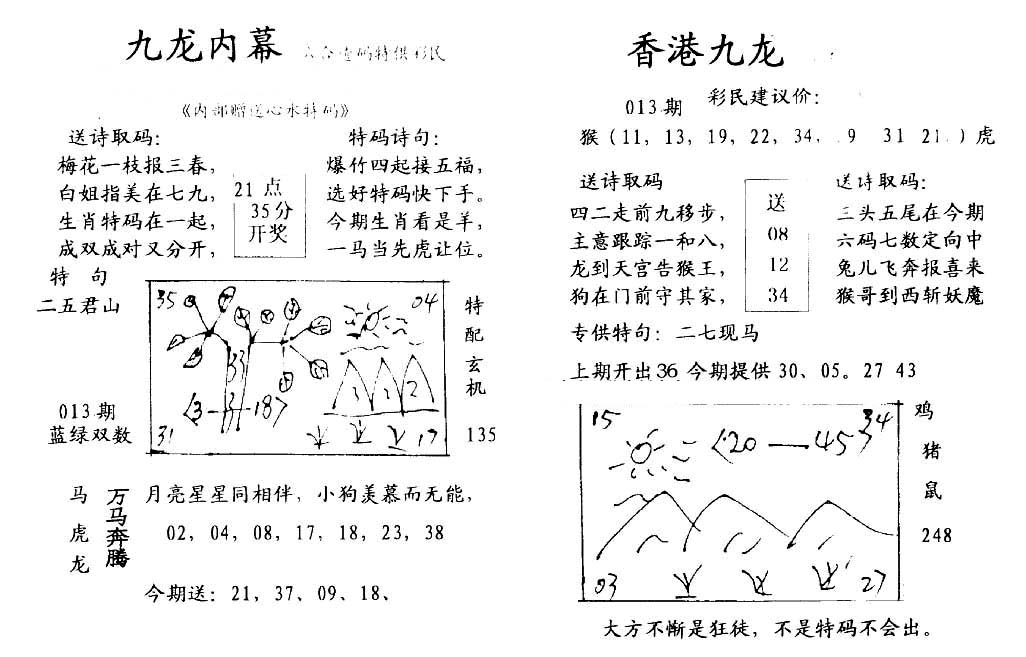 九龙内幕
《内部赠送心水特码》
送诗取码：
梅花一枝报三春，
白姐指美在七九，
生肖特码在一起，
成双成对又分开，
21 点
35分
开奖
特码诗句：
爆竹四起接五福，
选好特码快下手。
今期生肖看是羊，
一马当先虎让位。
特 句
二五君山
013期
蓝绿双数
35 04
33
<3—3—187
1 1 2
31 17
特配玄机
135
马虎龙
万马奔腾
月亮星星同相伴，小狗羡慕而无能，
02，04，08，17，18，23，38
今期送：21，37、09、18、
香港九龙
013期 彩民建议价：
猴（11，13，19，22，34， 9 31 21 ）虎
送诗取码
四二走前九移步，
主意跟踪一和八，
龙到天宫告猴王，
狗在门前守其家，
送
08
12
34
送诗取码：
三头五尾在今期
六码七数定向中
兔儿飞奔报喜来
猴哥到西斩妖魔
专供特句：二七现马
上期开出36 今期提供 30、05。27 43
15 34
<20—45
03 27
鸡
猪
鼠
248
大方不惭是狂徒，不是特码不会出。